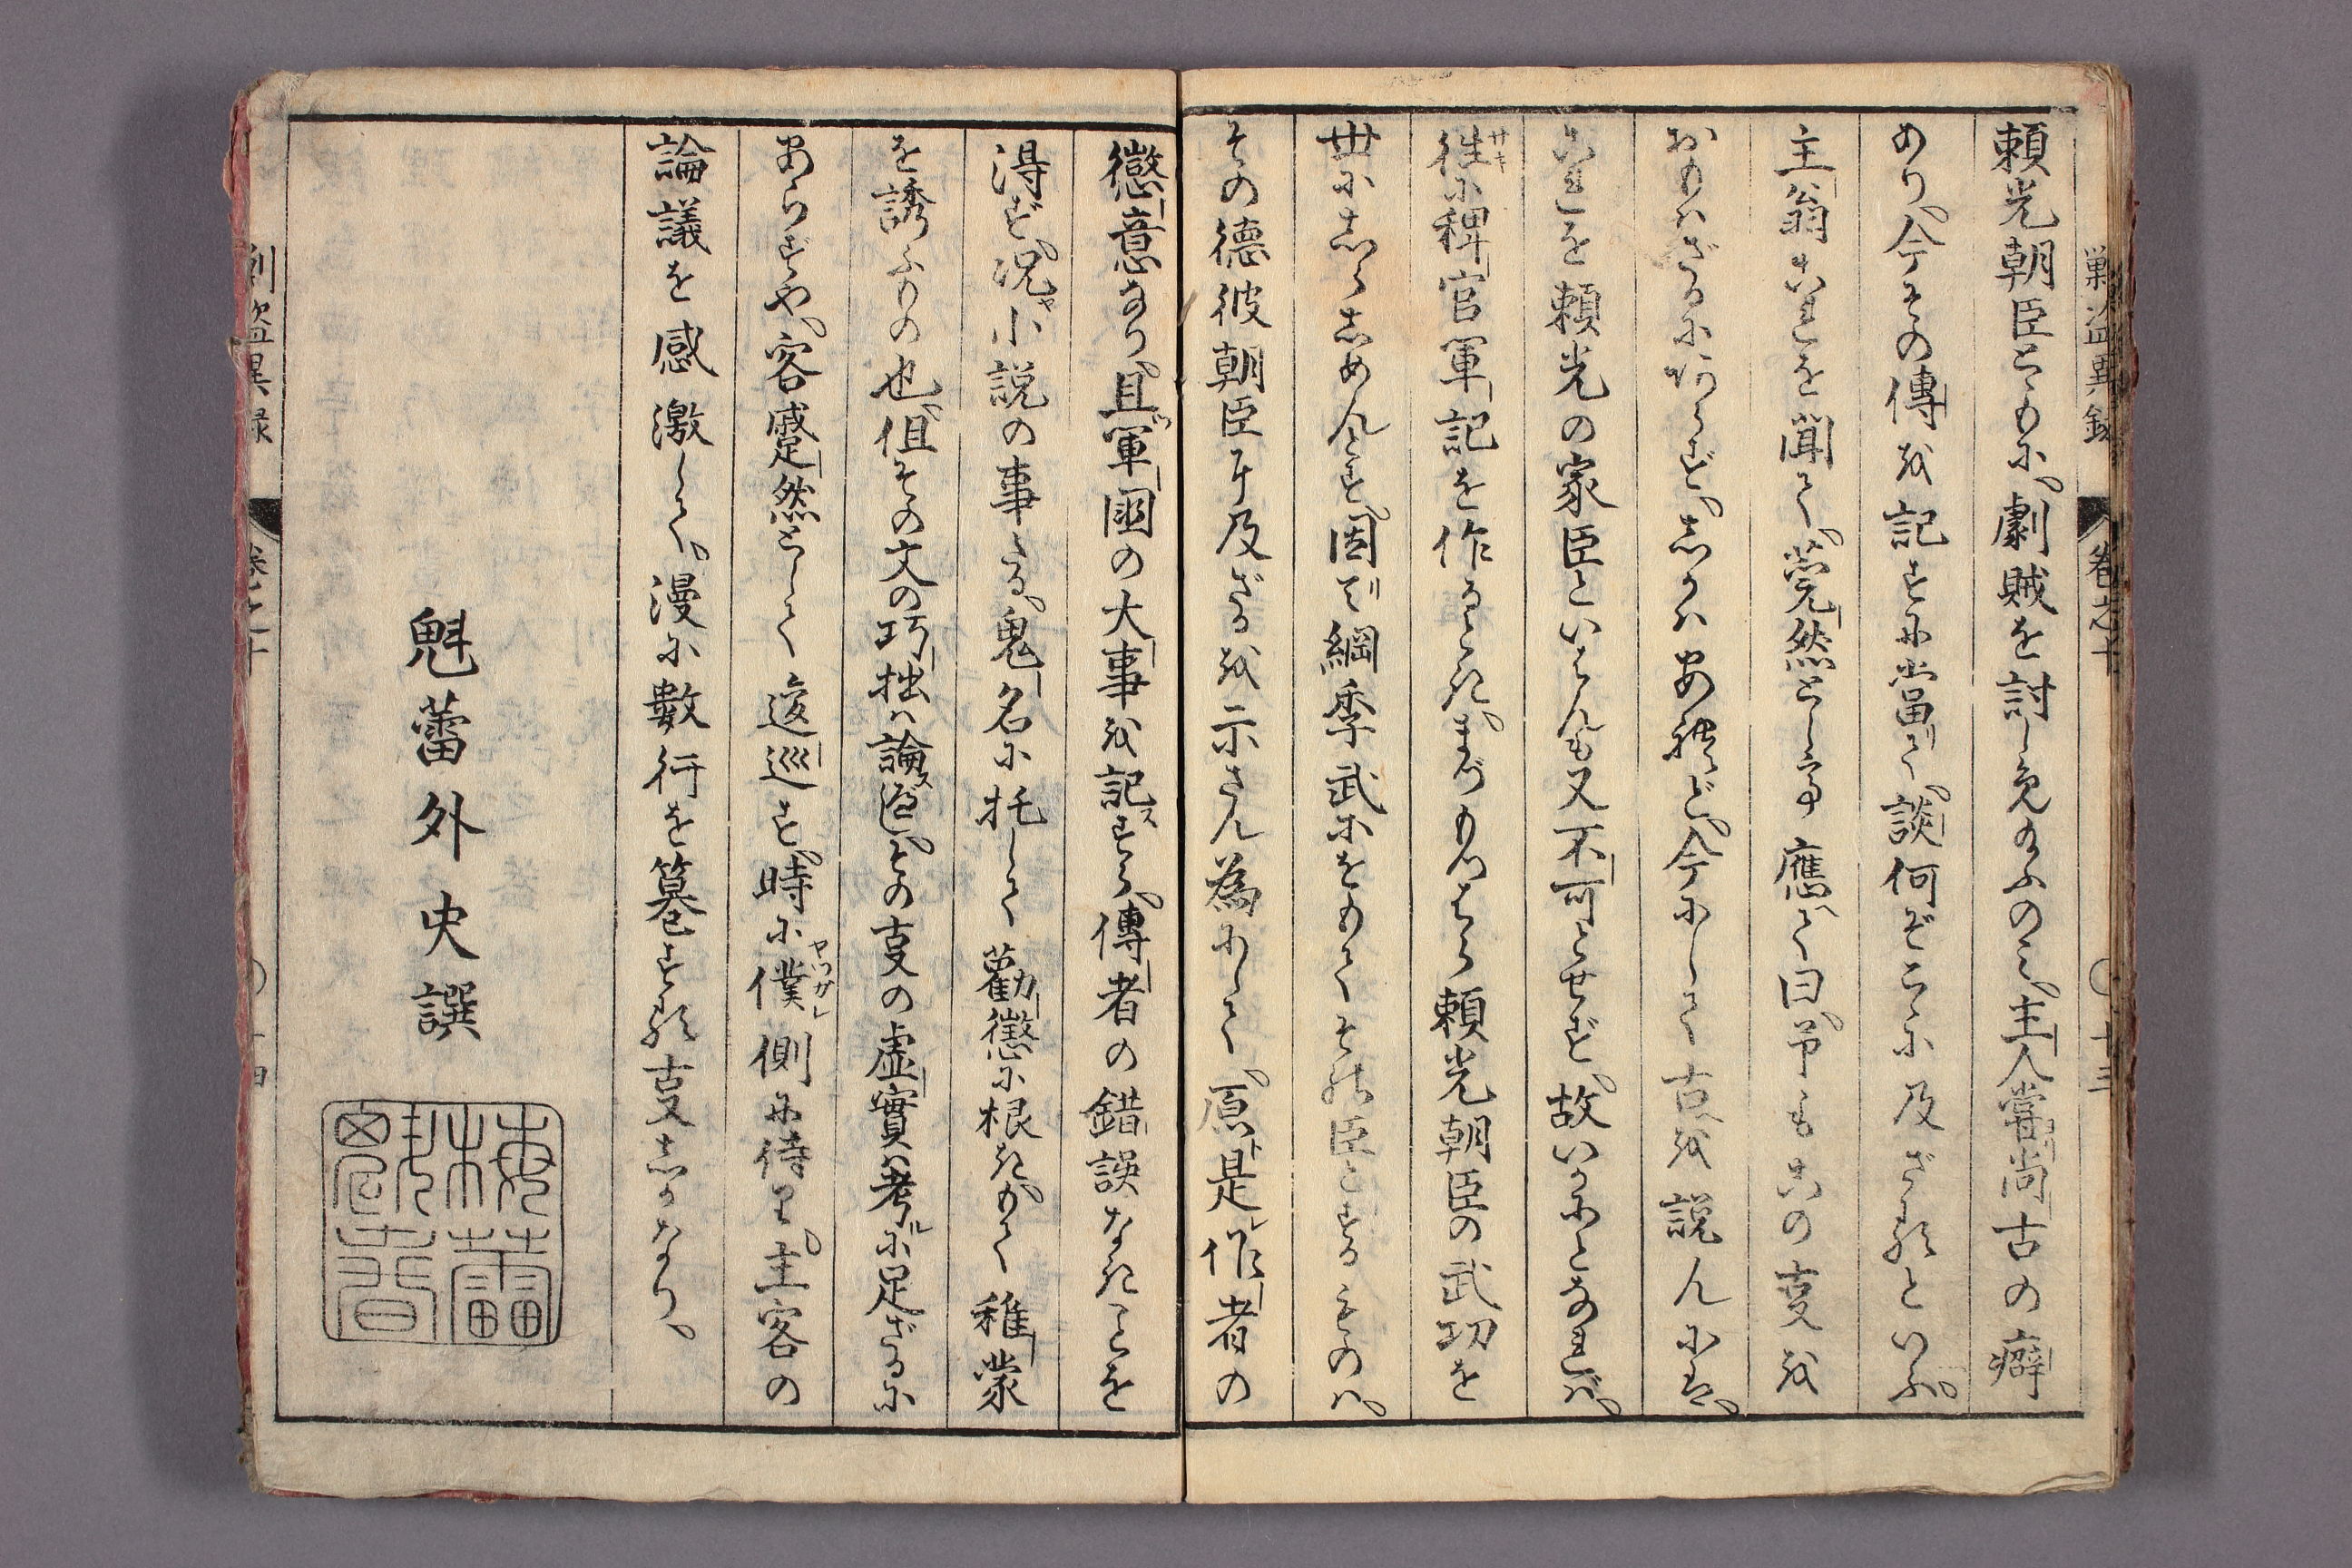 巣盗異録
卷之十
十三
頼光朝臣とゝもに。劇賊を討し免給ふのミ。主人嘗尚古の癖
あり。今その傳を記すに當て。談何ぞこゝに及ざるといふ。
主翁これを聞て。莞然として應て曰。予もこの叓を
おもハざるに阿らず。しかハあれど。今にして古を説んにハ。
これを頼光の家臣といはんも又不可とせず。故いかにとなれば。
徃に稗官軍記を作るとき。まづもつはら頼光朝臣の武功を
世にしらしめんとす。因て綱季武にをもてその臣とするものハ。
その徳彼朝臣に及ざるを示さん為にして。原是作者の
懲意なり。且軍國の大事を記すら。傳者の錯誤なきことを
得ず。况小説の事たる。鬼名に托して勸懲に根きがて稚蒙
を誘ふもの也。但その文の巧拙ハ論ズ進。その叓の虚實ハ考ルに足ざるに
あらずや。客蹙然として逡巡す。時に僕側に侍り。主客の
論議を感激して。漫に數行を簒する叓しかなり。
魁蕾外史譔
梅魁蕾春
刻盗異録
卷之十
十四